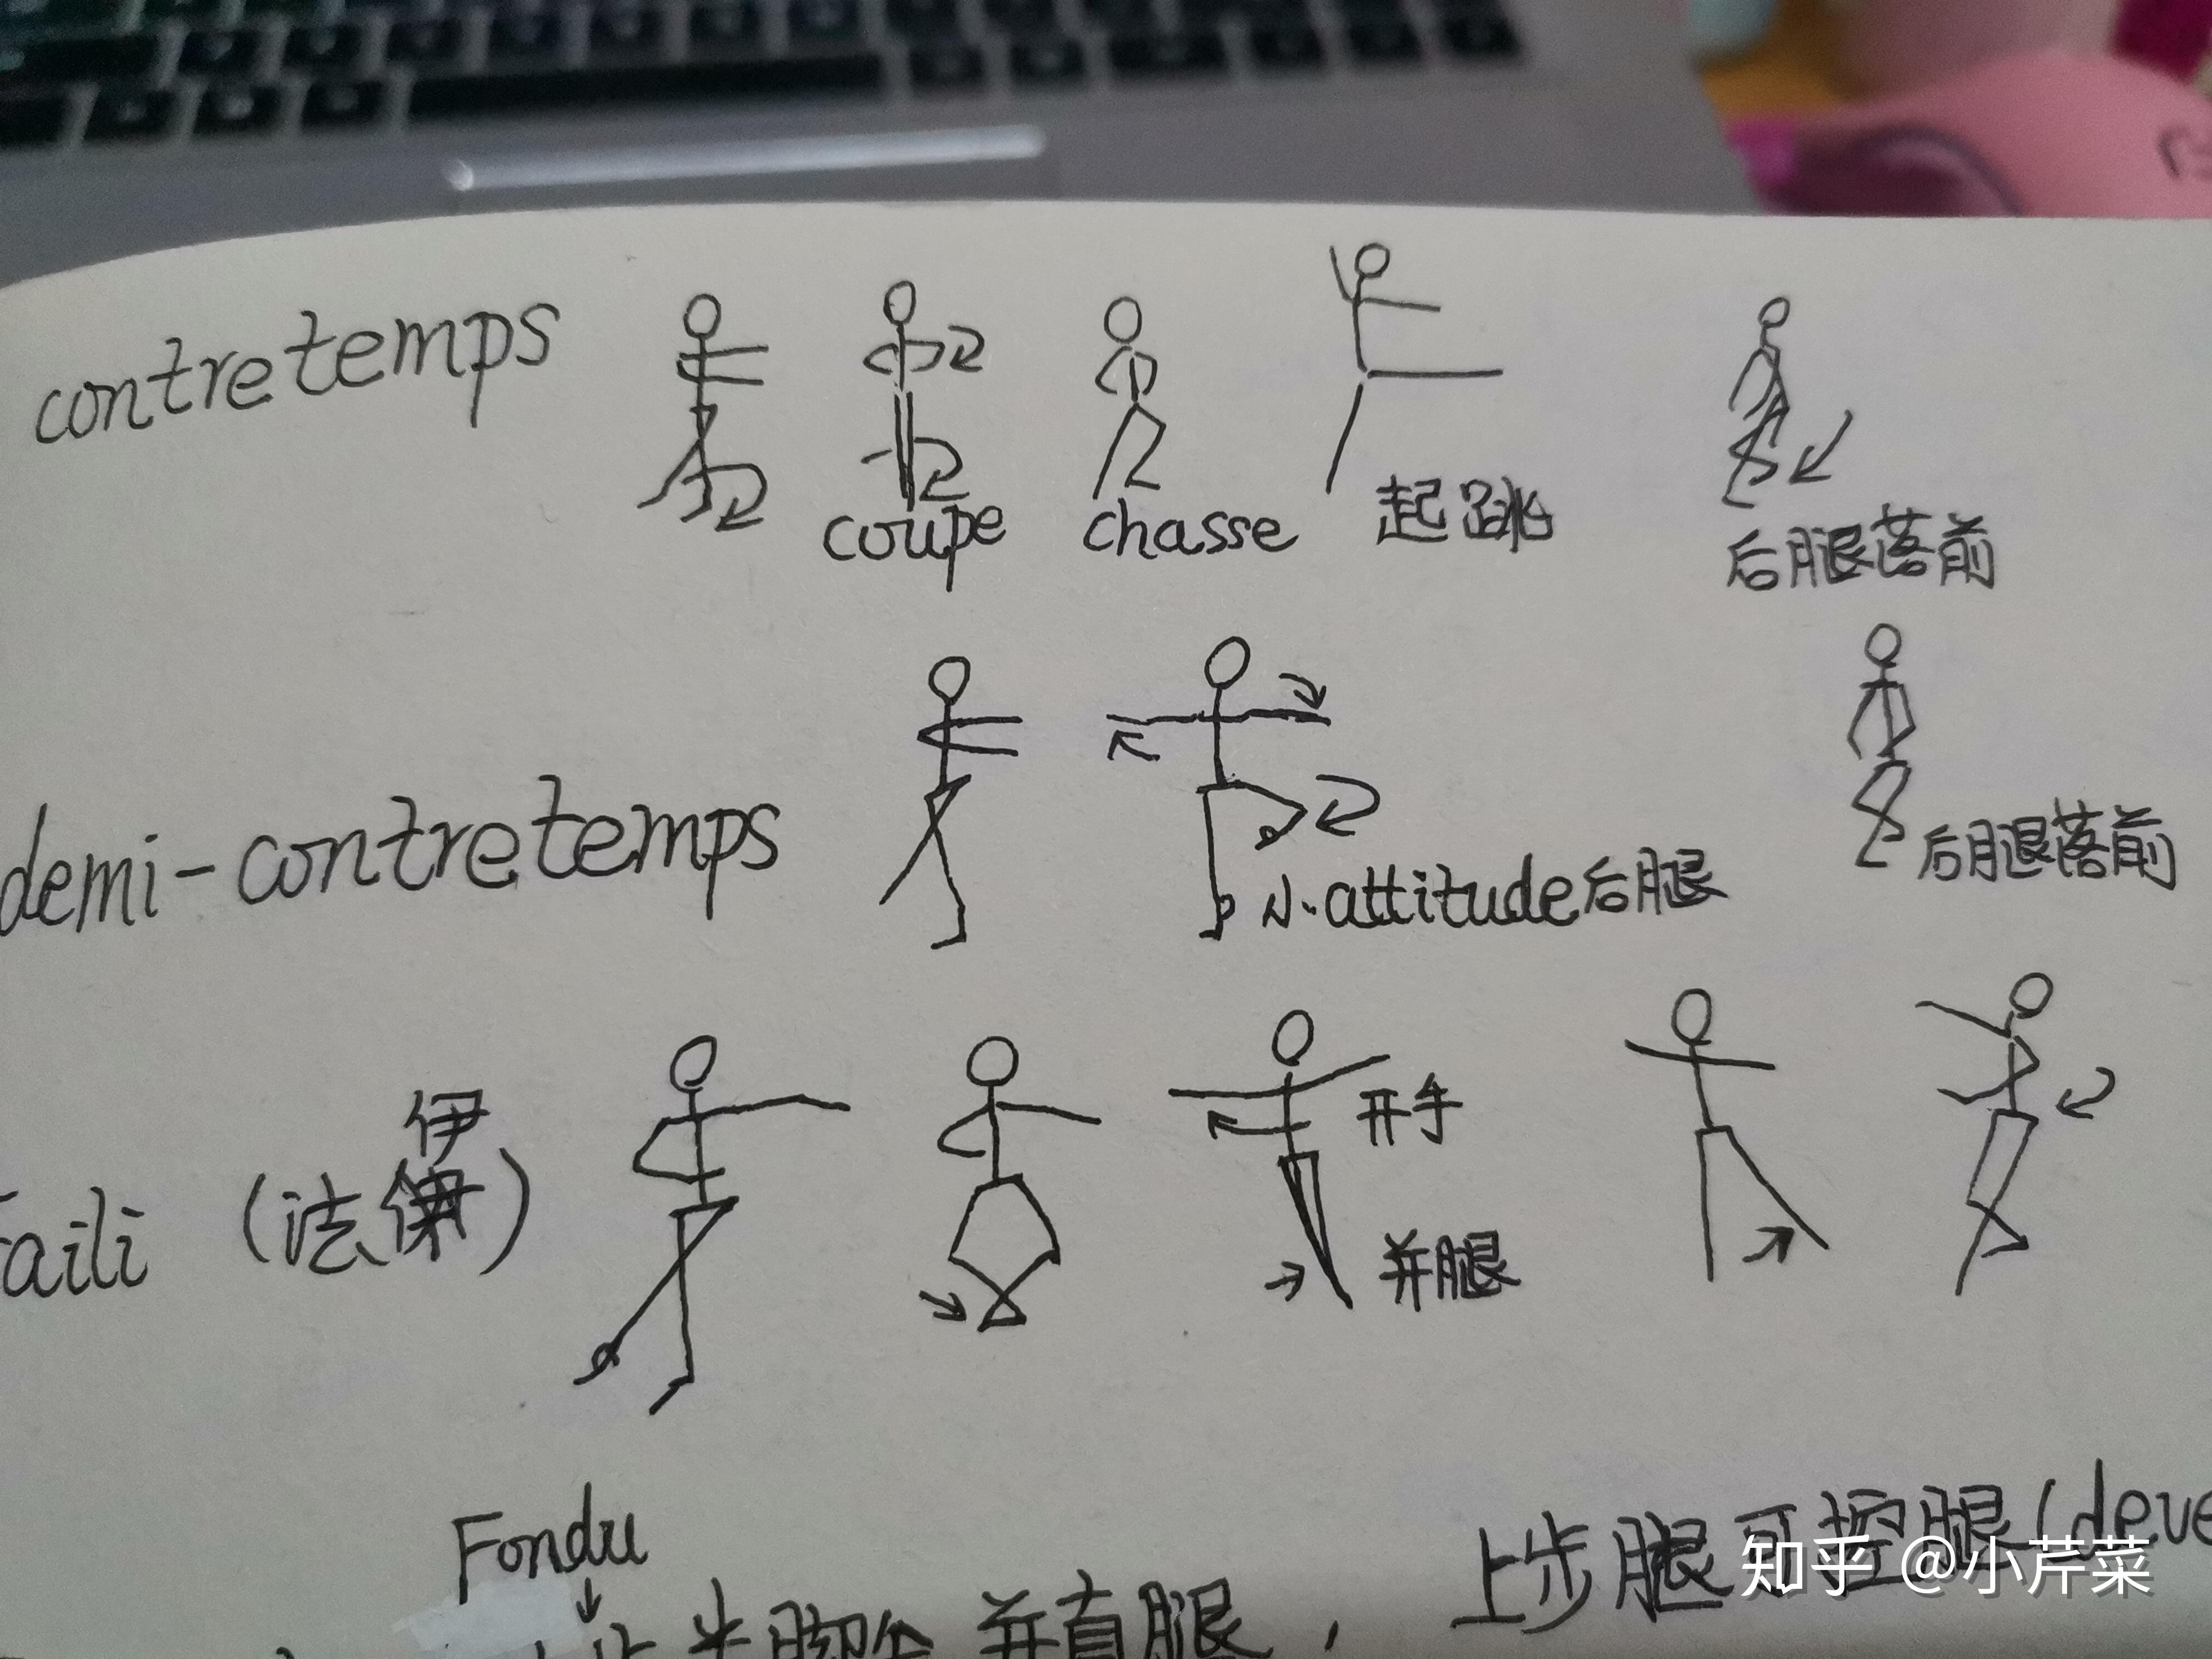 contretemps
coupe chasse 起跳 后腿落前
demi-contretemps
小attitude后腿 后腿落前
开手
伊
faili (法
并腿
Fondu
上步腿可控腿(deve
并直腿，
知乎 @小芹菜